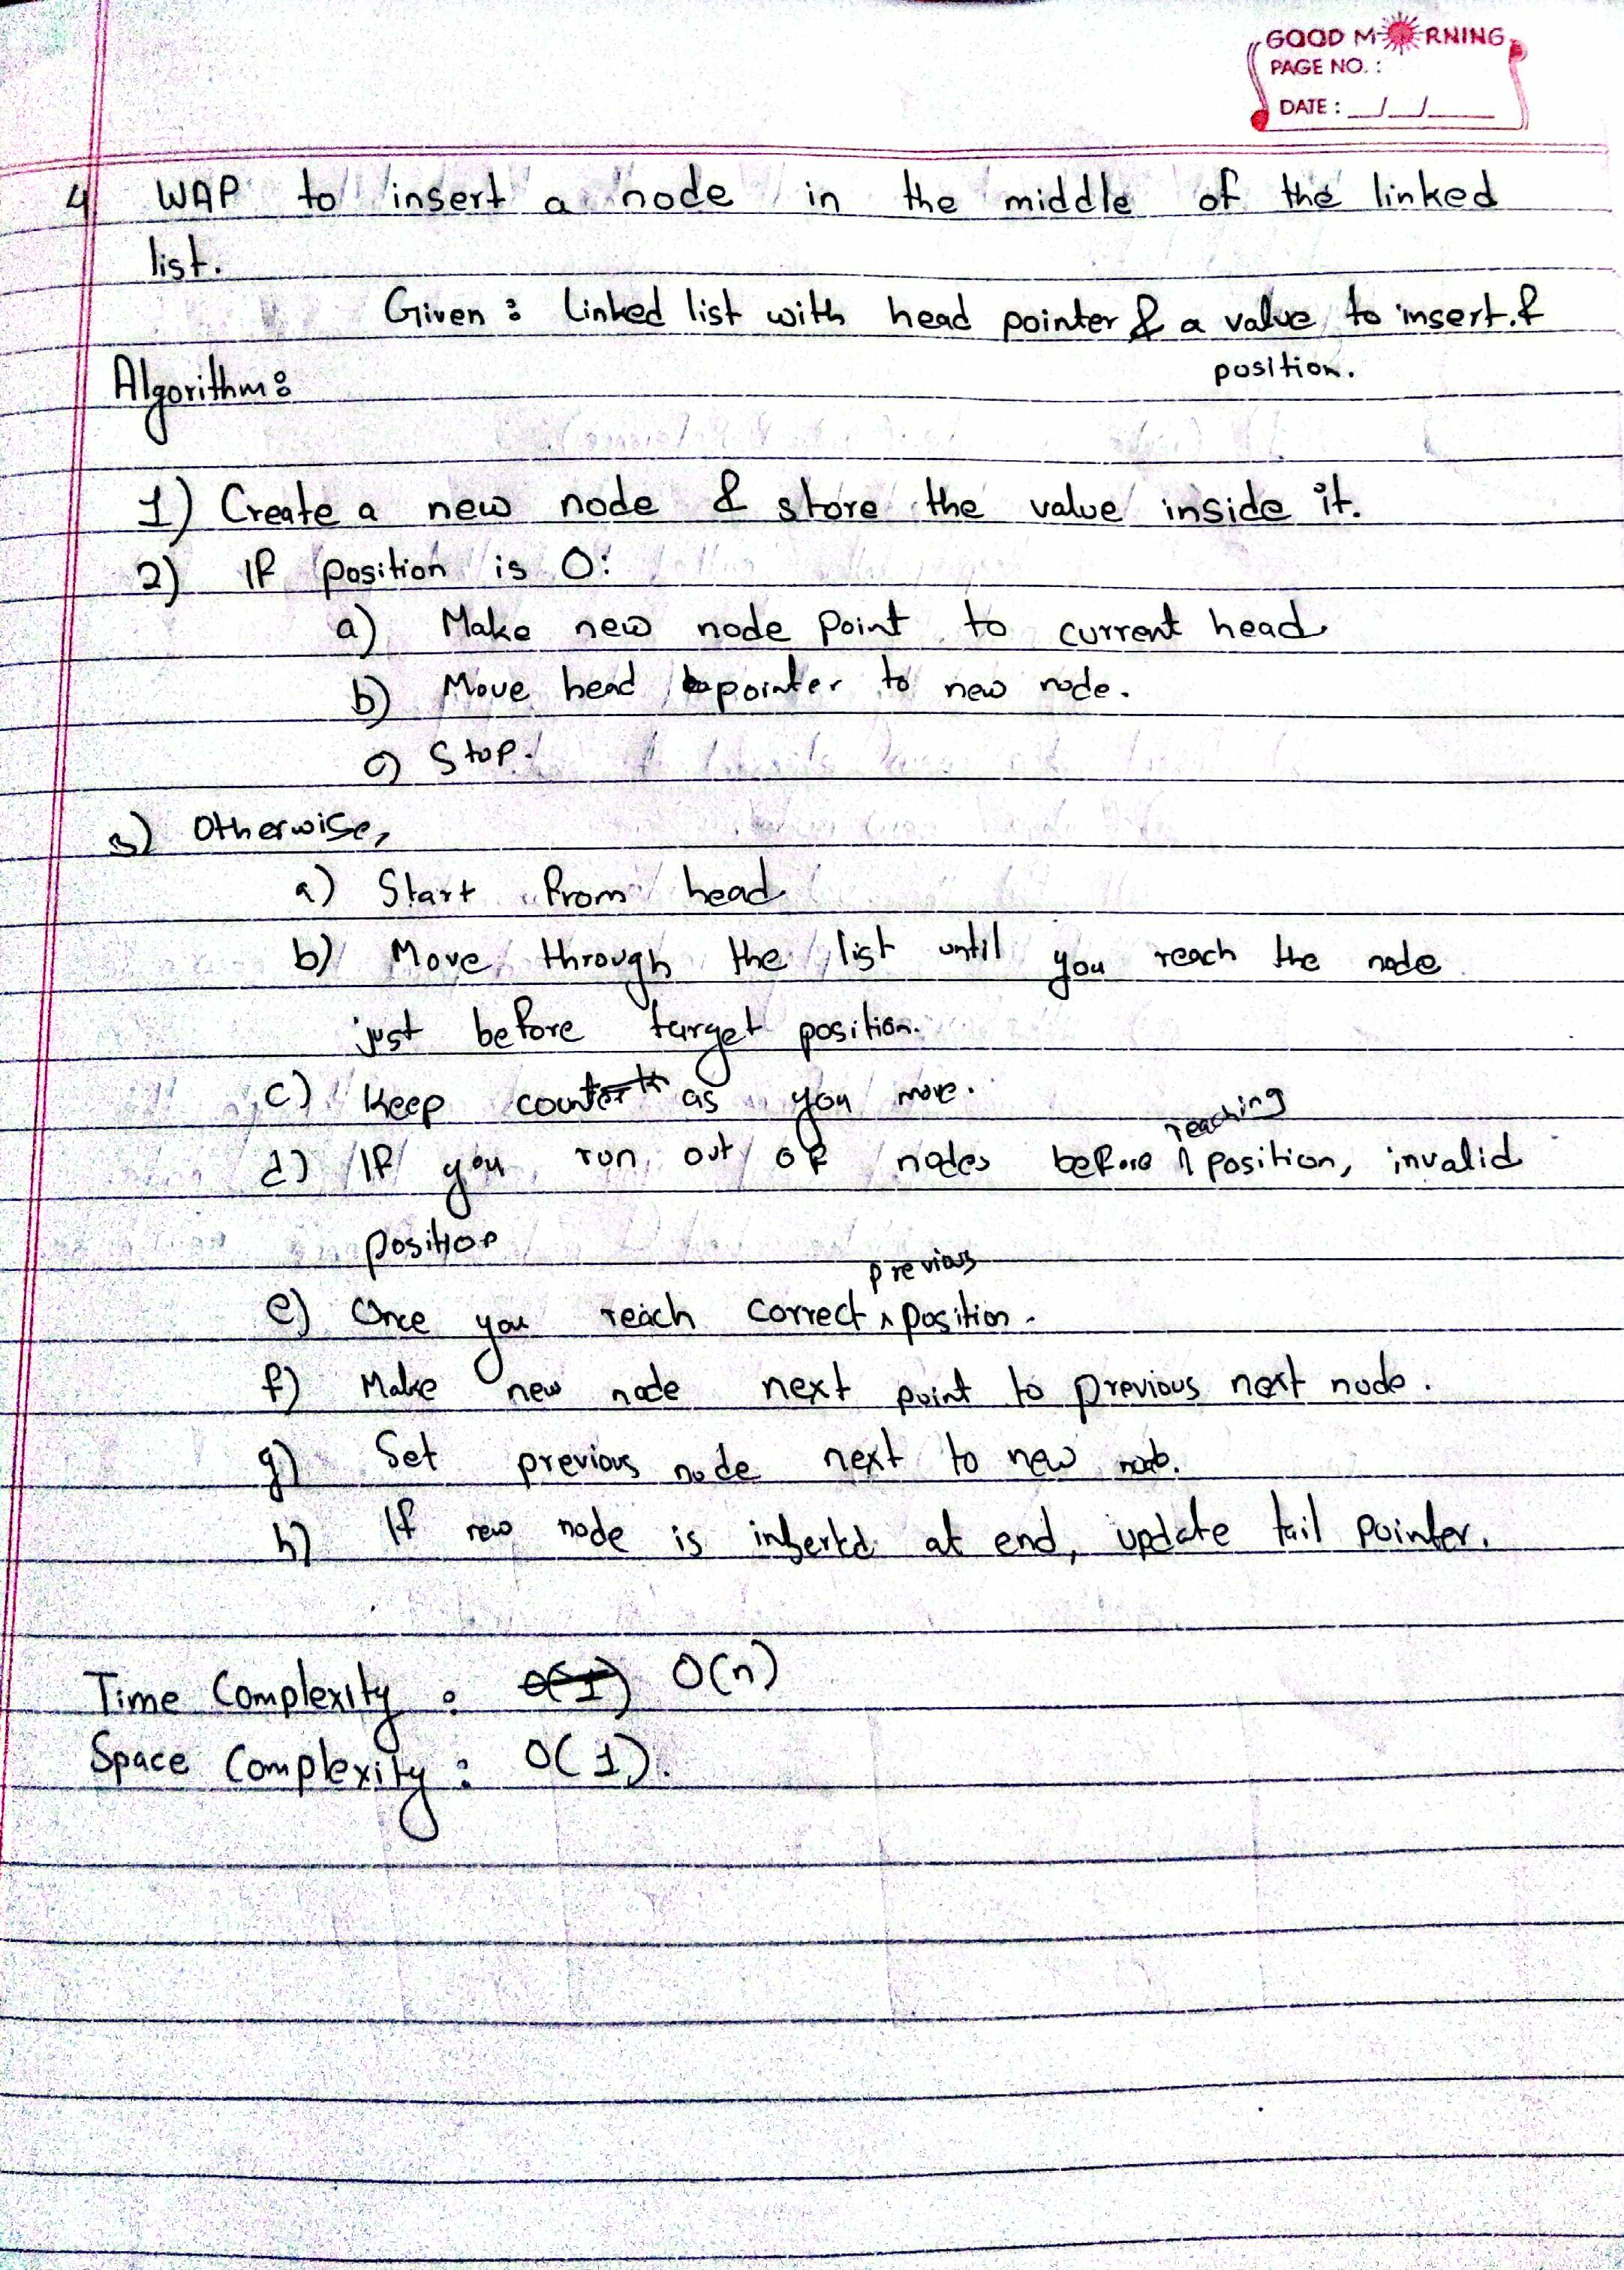 GOOD MORNING
PAGE NO. :
DATE : __/__/____
4) WAP to insert a node in the middle of the linked
list.
Given : Linked list with head pointer & a value to insert. &
position.
Algorithm :
1) Create a new node & store the value inside it.
2) If position is 0:
a) Make new node point to current head
b) Move head pointer to new node.
c) Stop.
3) Otherwise,
a) Start from head
b) Move through the list until you reach the node
just before target position.
c) Keep count as you move.
d) If you run out of nodes before reaching position, invalid
position
e) Once you reach correct previous position.
f) Make new node next point to previous next node.
g) Set previous node next to new node.
h) If new node is inserted at end, update tail pointer.
Time Complexity : O(1) O(n)
Space Complexity : O(1).